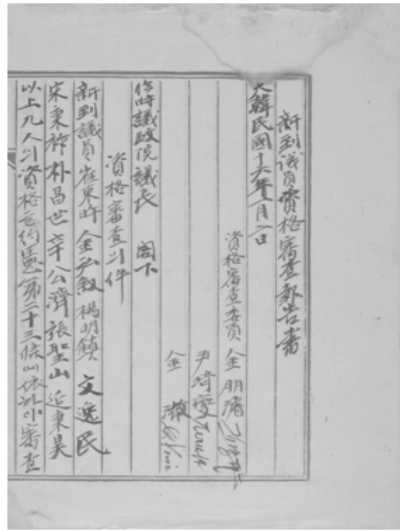 新到議員資格審査報告書
大韓民國十六年一月二日
資格審査委員 金朋濬
尹琦燮
金 澈
臨時議政院議長 閣下
資格審査의件
新到議員崔東旿 金弘敍 楊明鎭 文逸民
宋秉祚 朴昌世 辛公濟 張聖山 延秉昊
以上九人의資格을約憲第二十三條에依하야審査